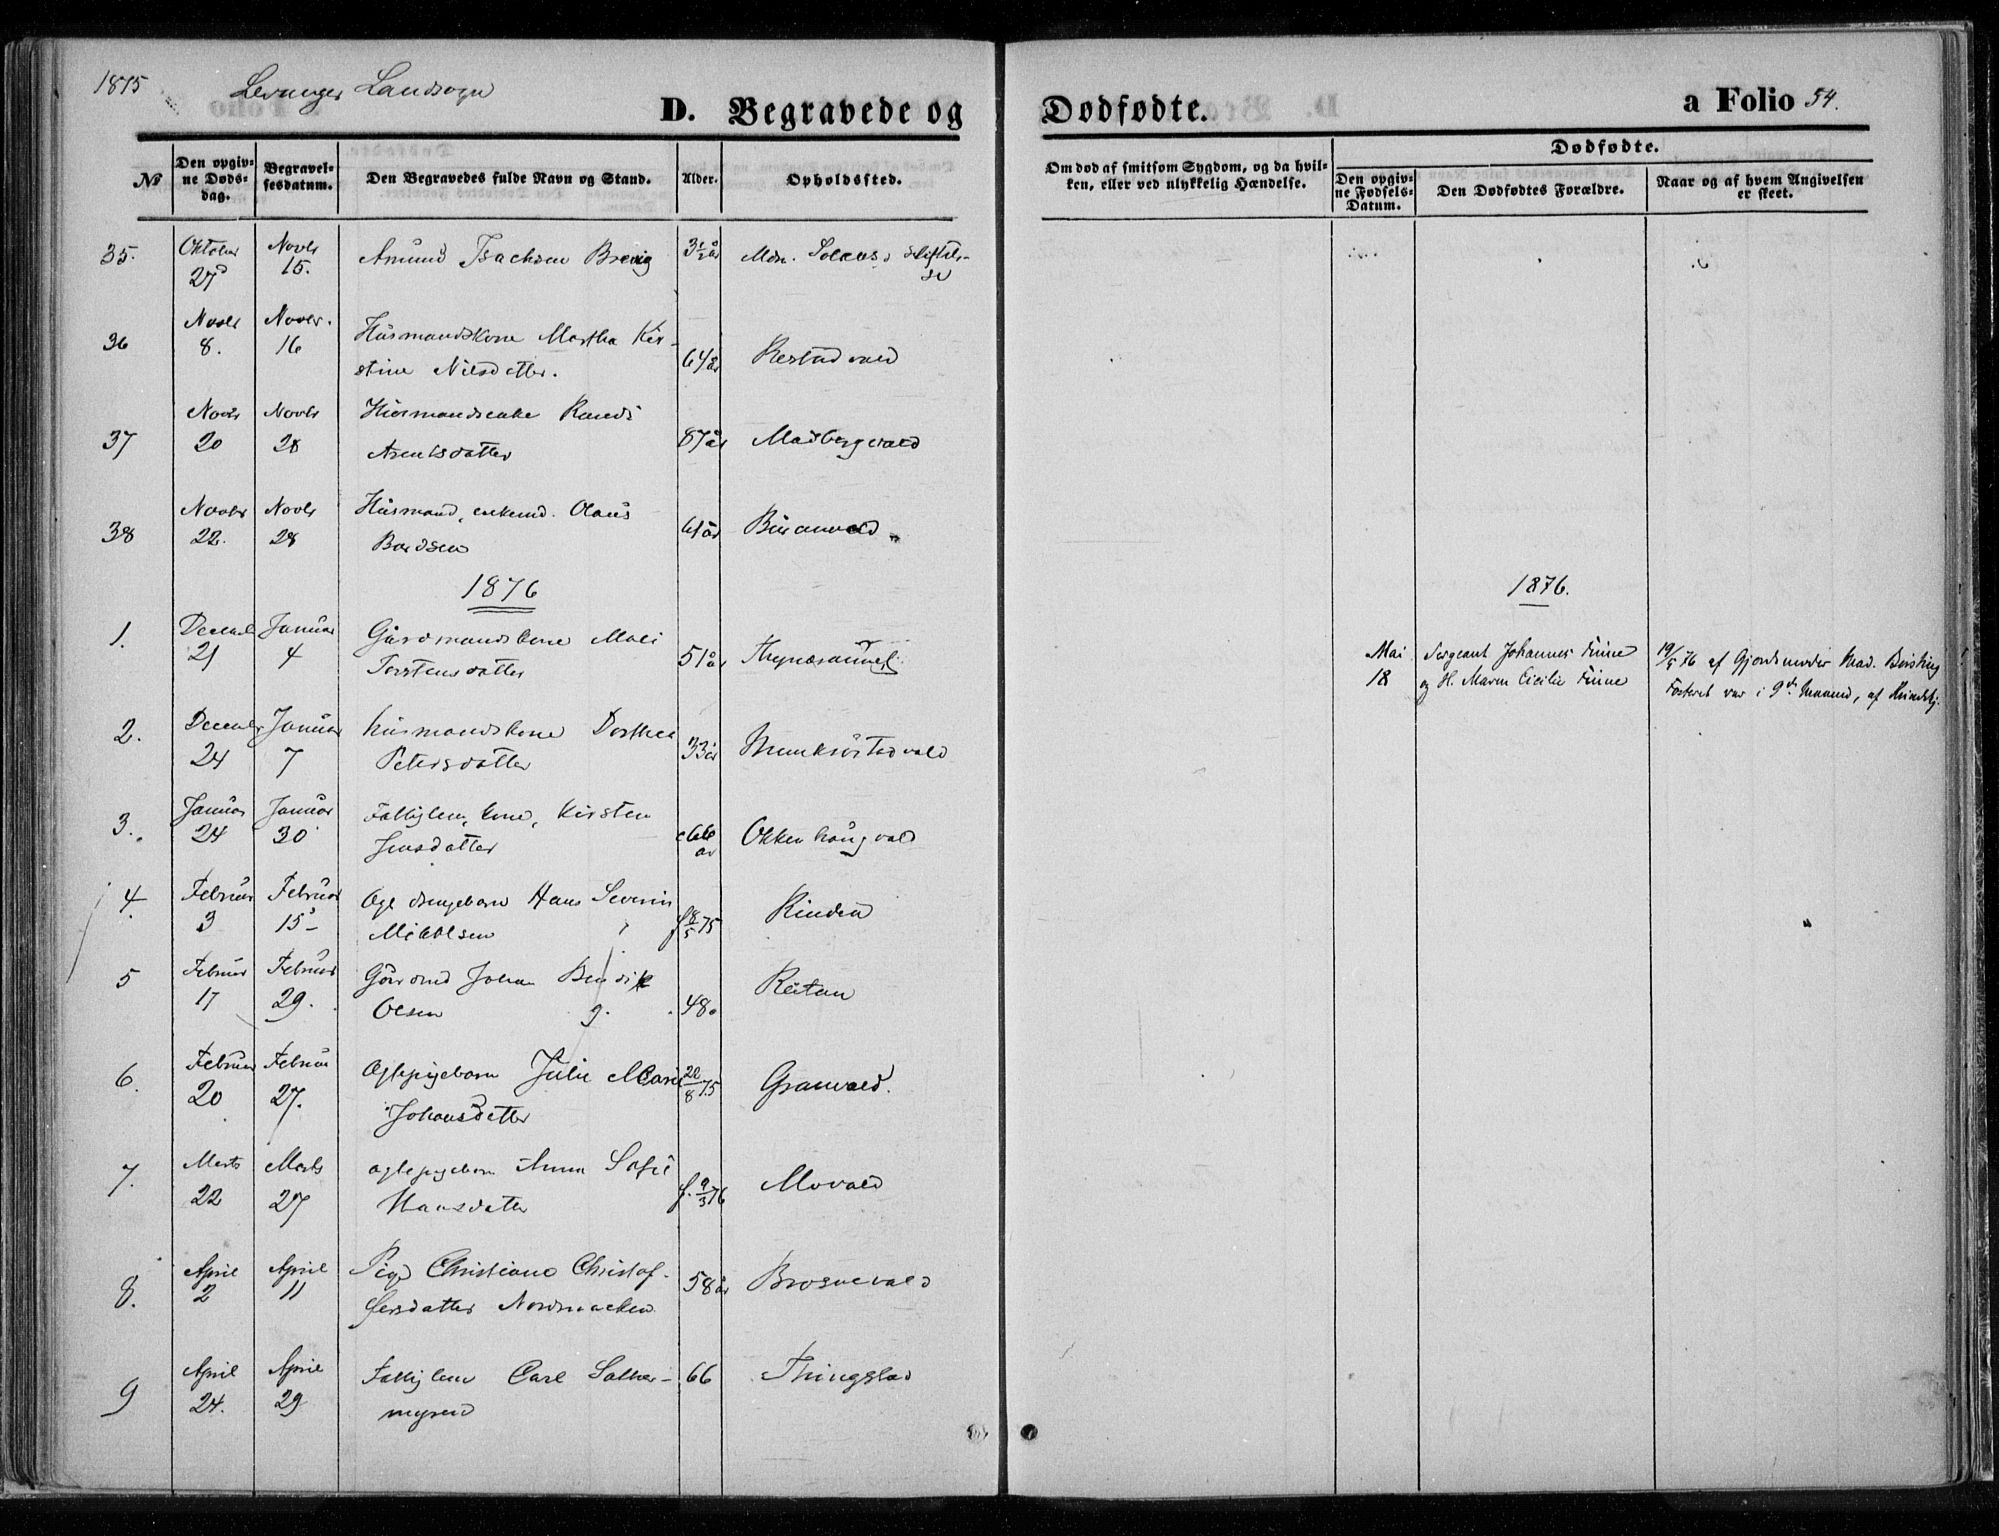 1875 Levanger Landsogn
D. Begravede og Dødfødte. a Folio 54.
№ Den opgivne Dødsdag. Begravelsesdatum. Den Begravedes fulde Navn og Stand. Alder. Opholdssted. Om død af smitsom Sygdom, og da hvilken, eller ved ulykkelig Hændelse. Dødfødte.
Den opgivne Fødsels-Datum. Den Dødfødtes Forældre. Naar og af hvem Angivelsen er skeet.
35. Oktober 27 Novbr 15. Amund Isachsen Brevig 3½ år
36 Novbr 8. Novbr. 16 Husmandskone Martha Kir-
stine Nilsdatter. 64 år Restad vald
37 Novbr 20 Novbr 28 Husmandsenke Randi
Arentsdatter 87 år Madberg vald
38 Novbr 22. Novbr 28 Husmand, enkemd. Olaus
Bardsen 61 år
1876 1876.
1. Decembr 21 Januar 4 Gårdmandskone Mali
Torstensdatter 51 år
Mai 18 Sergeant Johannes Finne
og H. Maren Cicilie Finne
19/5 76 af Gjordemoder Mad.
Fosteret var i 9de Maaned, af
2. Decembr 24 Januar 7 Husmandskone Dorthea
Petersdatter 33 år Munkrøstadvald
3. Januar 24 Januar 30 Fattiglem, kone, Kirsten
Jensdatter 66 år Okkenhaug vald
4. Februar 3 Februar 15 Ægte drengebarn Hans Severin
Mikkelsen f 8/5 75 Rinden
5 Februar 17 Februar 29. Gårdmd Johan Bendik
Olsen 48 Reitan
6. Februar 20 Februar 27. Ægte pigebarn Julie Marie
Johansdatter 22/8 75 Granvald.
7. Marts 22 Marts 27 Ægte pigebarn Anna Sofie
Hansdatter f. 9/3 76 Movald
8. April 2 April 11 Pige Christiane Christof-
fersdatter Nordmarken 58 år Brosnevald
9 April 24. April 29 Fattiglem Carl Salther-
myren 66 Thingstad